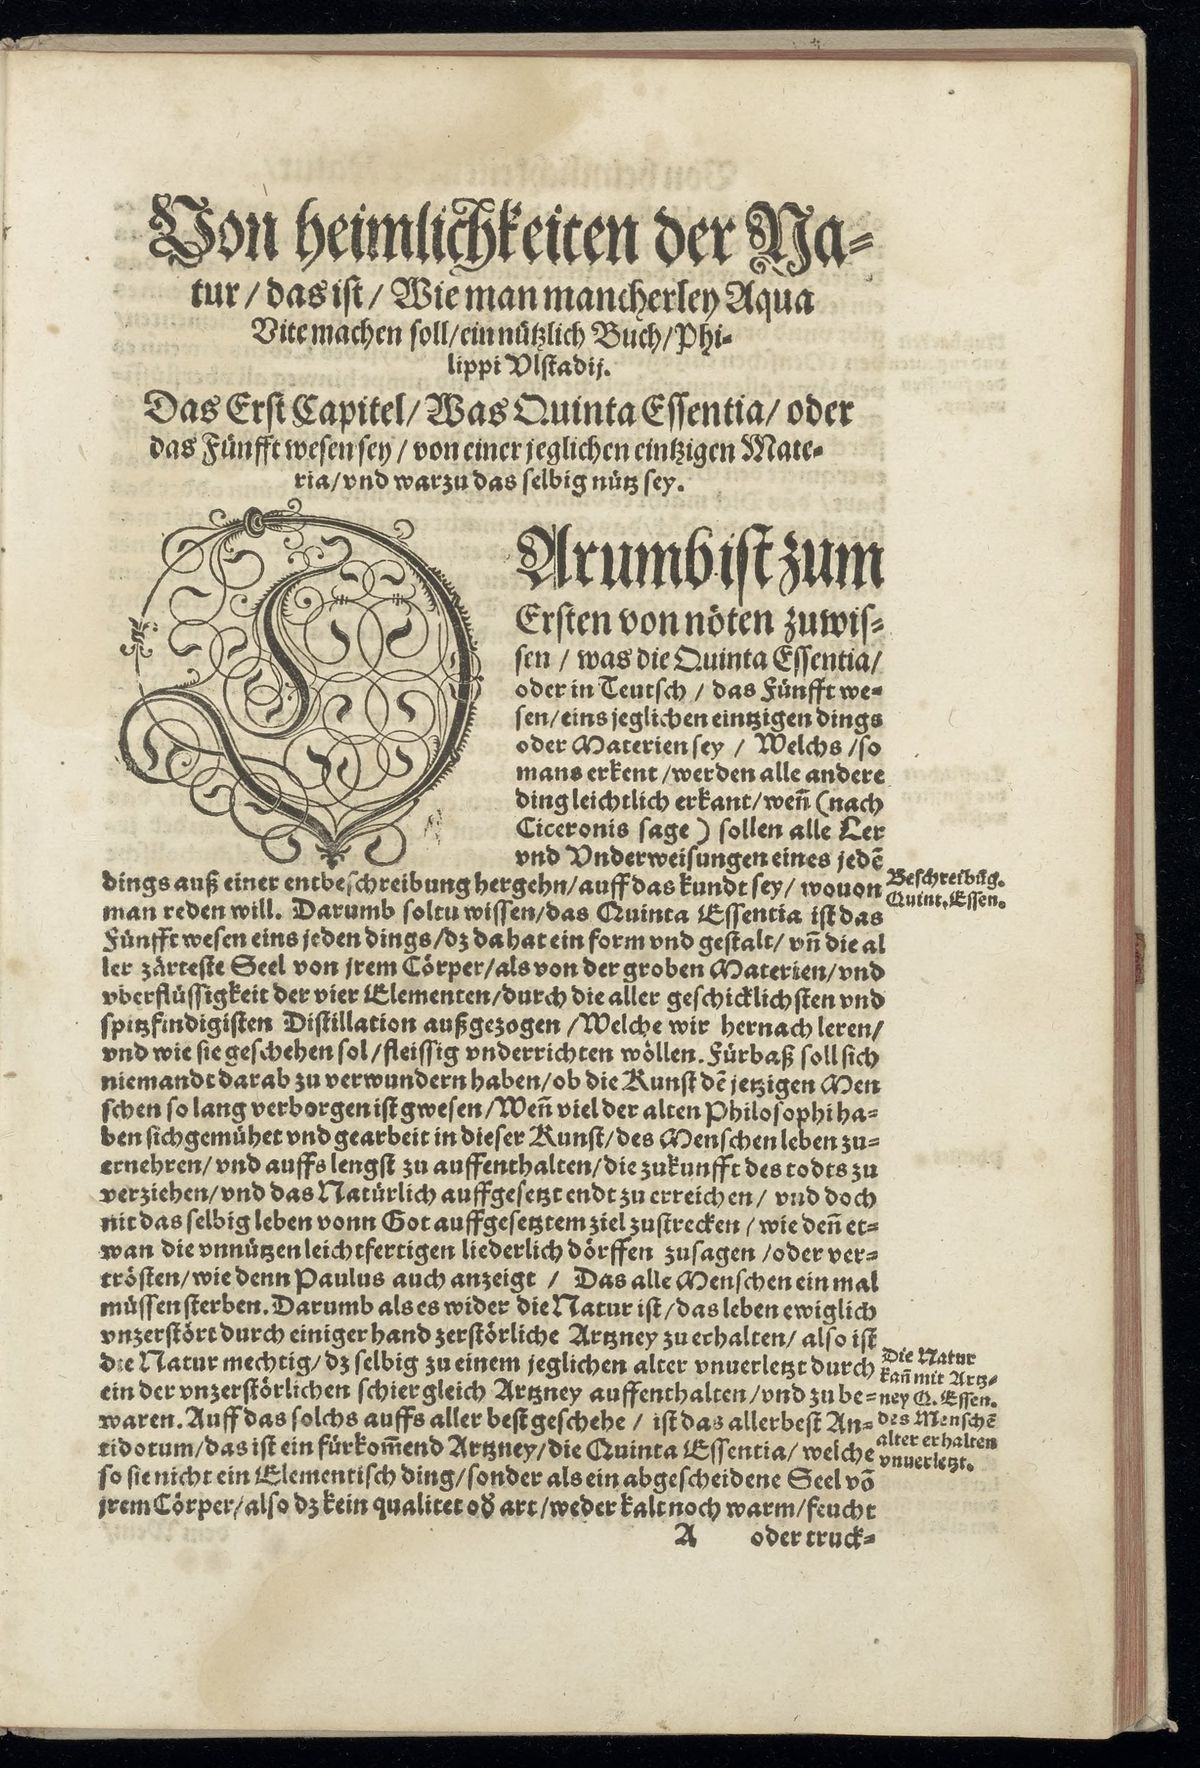 Von heimlichkeiten der Na-
tur / das ist / Wie man mancherley Aqua
Vite machen soll / ein nützlich Buch / Phi-
lippi Vlstadij.
Das Erst Capitel / Was Quinta Essentia / oder
das Fünfft wesen sey / von einer jeglichen eintzigen Mate-
ria / vnd warzu das selbig nütz sey.
DArumb ist zum
Ersten von nöten zuwis-
sen / was die Quinta Essentia /
oder in Teutsch / das Fünfft we-
sen / eins jeglichen eintzigen dings
oder Materien sey / Welchs / so
mans erkent / werden alle andere
ding leichtlich erkant / weñ (nach
Ciceronis sage) sollen alle Ler
vnd Vnderweisungen eines jedē
dings auß einer entbeschreibung hergehn / auff das kundt sey / wouon
man reden will. Darumb soltu wissen / das Quinta Essentia ist das
Fünfft wesen eins jeden dings / dz da hat ein form vnd gestalt / vñ die al
ler zärteste Seel von jrem Cörper / als von der groben Materien / vnd
vberflüssigkeit der vier Elementen / durch die aller geschicklichsten vnd
spitzfindigisten Distillation außgezogen / Welche wir hernach leren /
vnd wie sie geschehen sol / fleissig vnderrichten wöllen. Fürbaß soll sich
niemandt darab zu verwundern haben / ob die Kunst dē jetzigen Men
schen so lang verborgen ist gwesen / Weñ viel der alten Philosophi ha-
ben sich gemühet vnd gearbeit in dieser Kunst / des Menschen leben zu-
ernehren / vnd auffs lengst zu auffenthalten / die zukunfft des todts zu
verziehen / vnd das Natürlich auffgesetzt endt zu erreichen / vnd doch
nit das selbig leben vonn Got auffgesetztem ziel zustrecken / wie deñ et-
wan die vnnützen leichtfertigen liederlich dörffen zusagen / oder ver-
trösten / wie denn Paulus auch anzeigt / Das alle Menschen ein mal
müssen sterben. Darumb als es wider die Natur ist / das leben ewiglich
vnzerstört durch einiger hand zerstörliche Artzney zu erhalten / also ist
die Natur mechtig / dz selbig zu einem jeglichen alter vnuerletzt durch
ein der vnzerstörlichen schier gleich Artzney auffenthalten / vnd zu be-
waren. Auff das solchs auffs aller best geschehe / ist das allerbest An-
tidotum / das ist ein fürkom̃end Artzney / die Quinta Essentia / welche
so sie nicht ein Elementisch ding / sonder als ein abgescheidene Seel võ
jrem Cörper / also dz kein qualitet oď art / weder kalt noch warm / feucht
A oder truck-
Beschreibūg.
Quint. Essen.
Die Natur
kañ mit Artz-
ney Q. Essen.
des Menschē
alter erhalten
vnuerletzt.